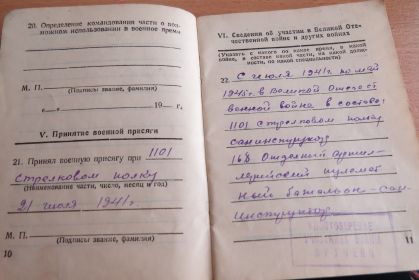 20. Определение командования части о воз-
можном использовании в военное время
М. П.
(Подписи звание, фамилии)
„ “ 19 г.
V. Принятие военной присяги
21. Принял военную присягу при 1101
стрелковом полку
(Наименование части, число, месяц и год)
21 июля 1941 г.
М. П.
(Подписи, звание, фамилии)
10
VI. Сведения об участии в Великой Оте-
чественной войне и других войнах
(Указать с какого по какое время, в какой
войне, в составе какой части, на какой долж-
ности, по какой специальности)
22. С июля 1941г. по май
1945г в Великой Отечест
венной война в составе:
1101 стрелковом полку
санинструктор
168 Отдельный Артил-
лерийский пулемет
ный батальон - сан-
инструктор
УДОСТОВЕРЕНИЕ
ВРУЧЕНО
11